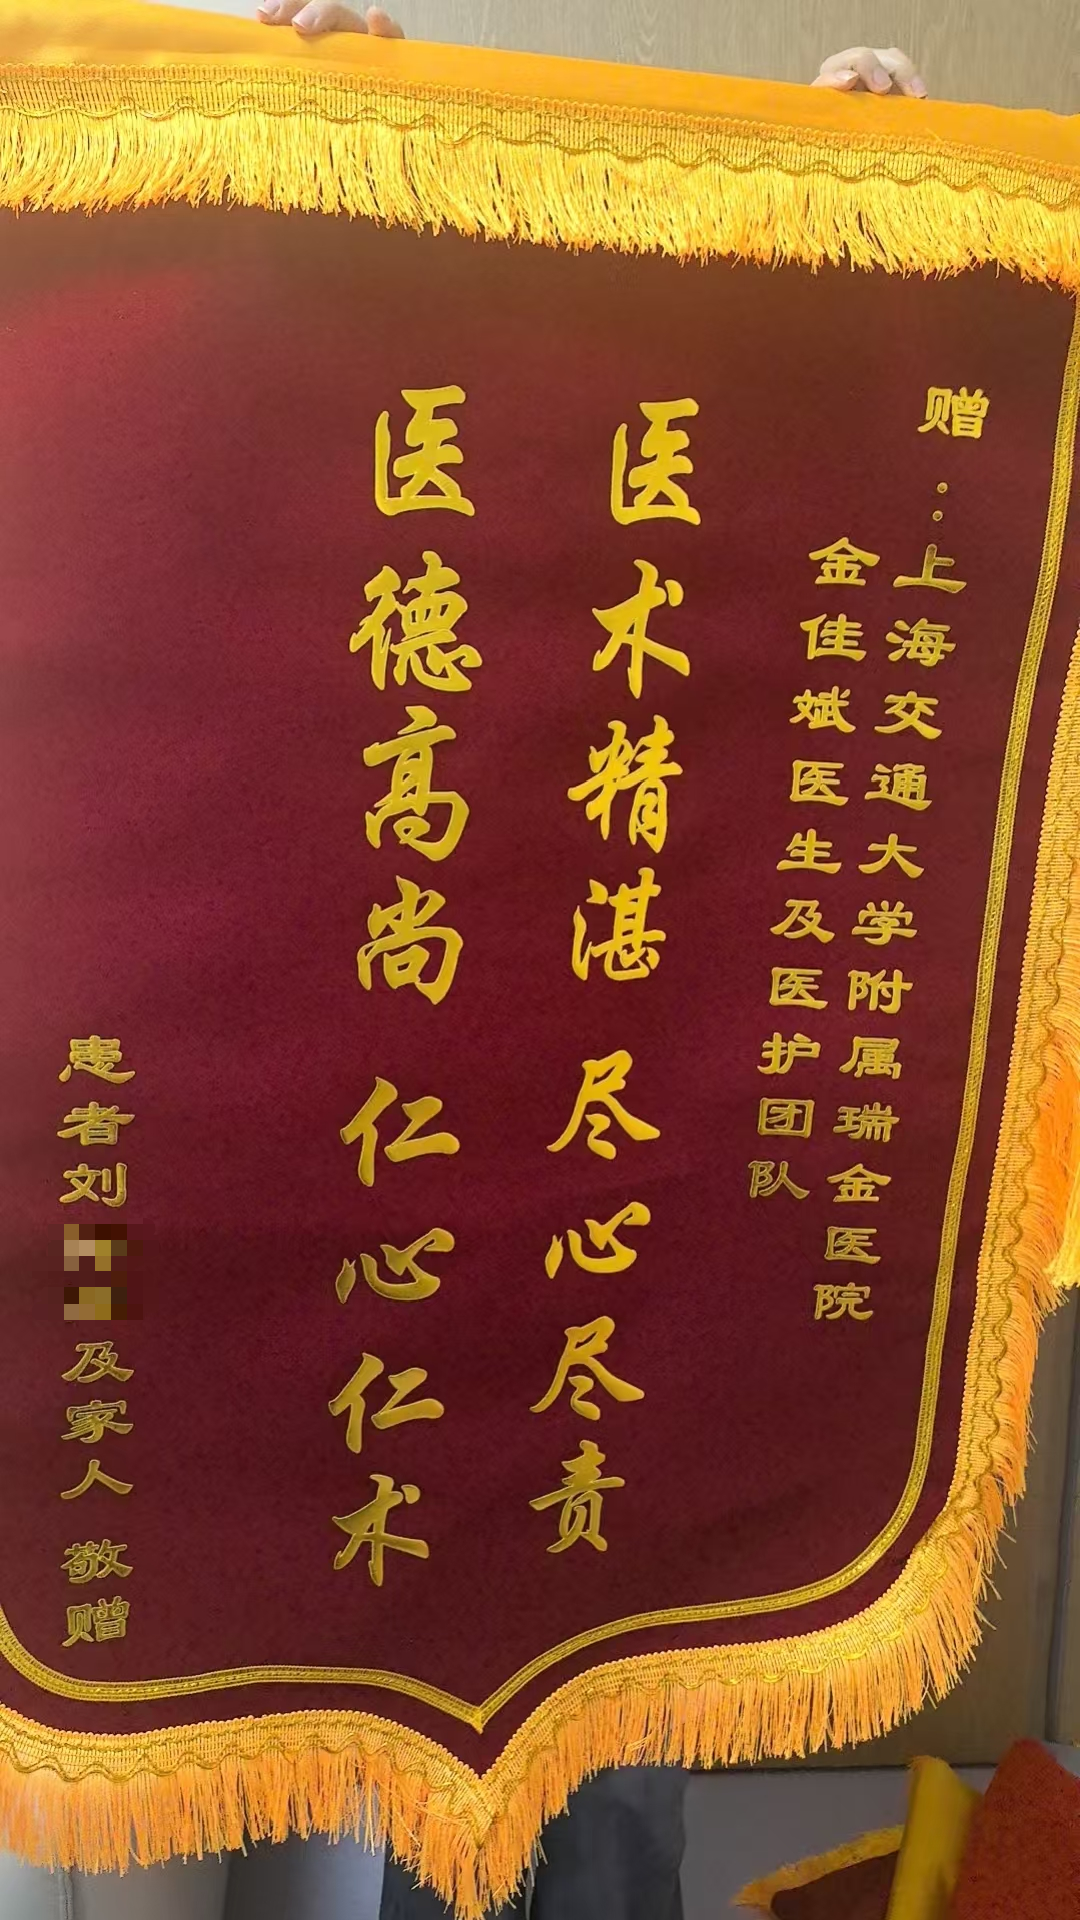 赠：上海交通大学附属瑞金医院
金佳斌医生及医护团队
医术精湛 尽心尽责
医德高尚 仁心仁术
患者刘 及家人 敬赠